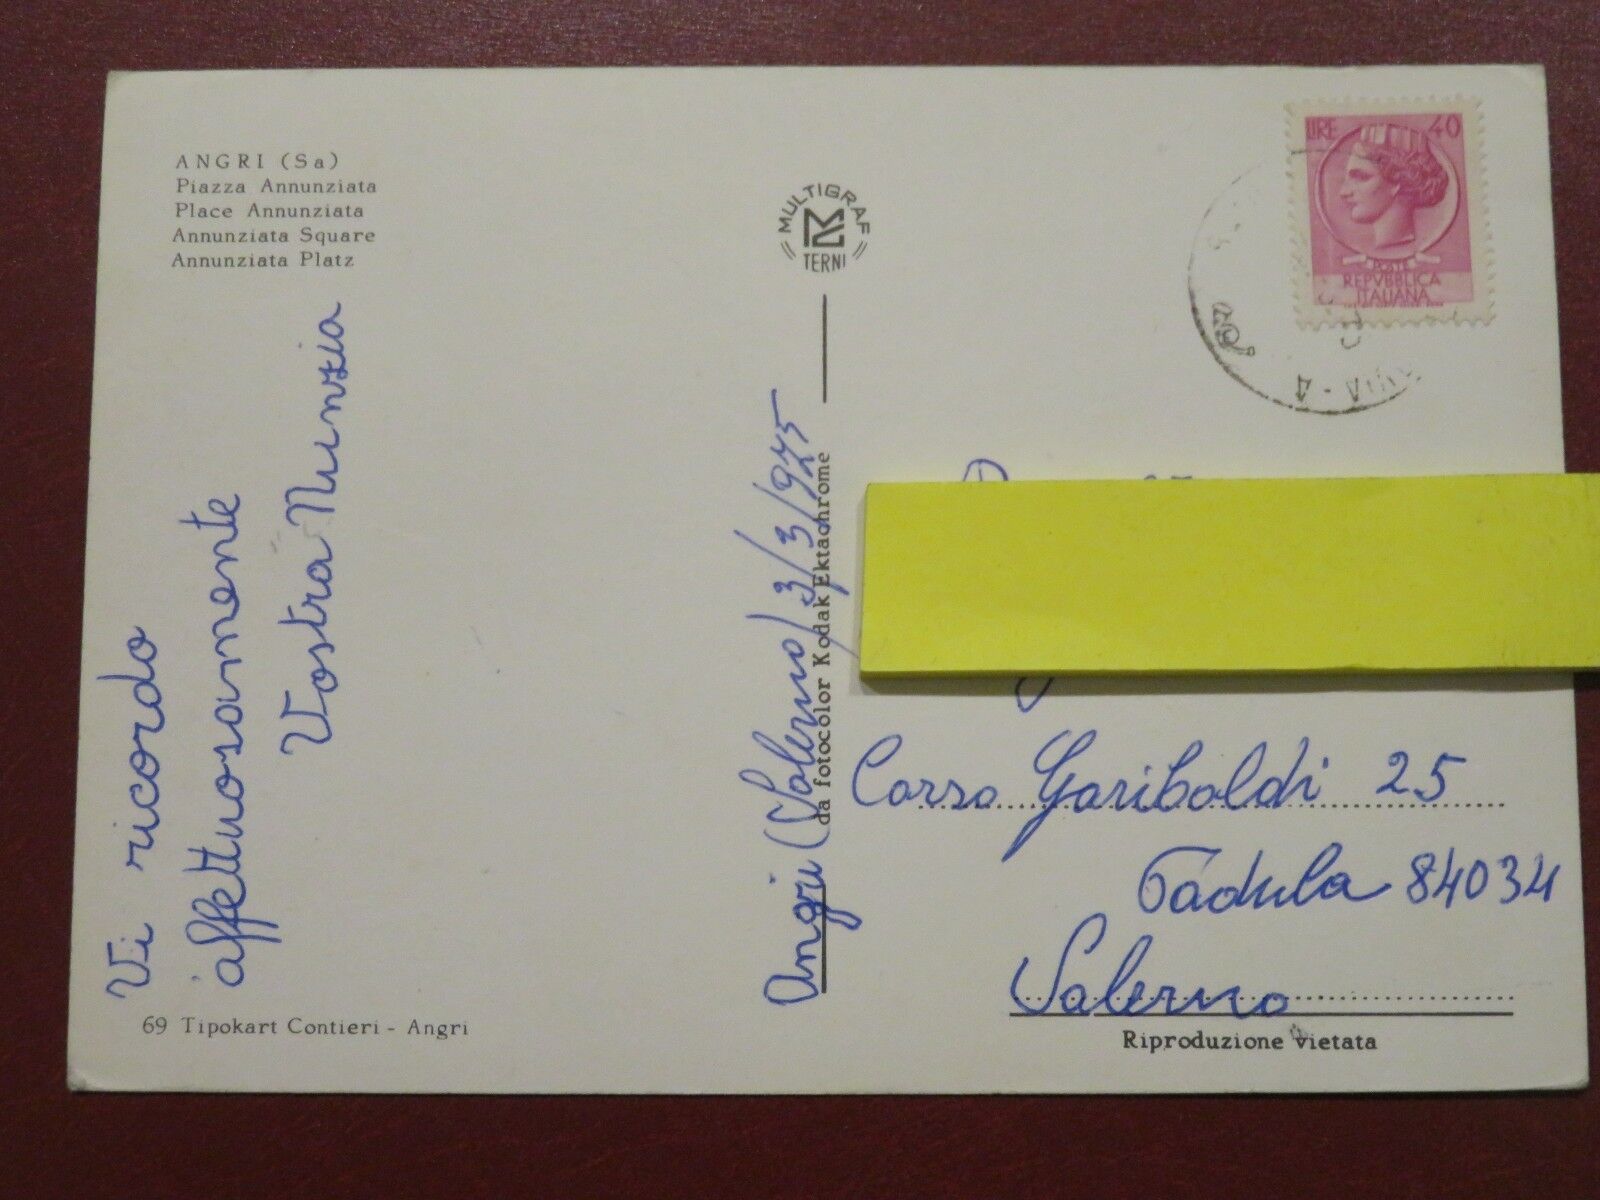 ANGRI (Sa)
Piazza Annunziata
Place Annunziata
Annunziata Square
Annunziata Platz
Vi ricordo
affettuosamente
Vostra Nunzia
69 Tipokart Contieri - Angri
MULTIGRAF
TERNI
da fotocolor Kodak Ektachrome
Angri (Salerno) 3/3/975
LIRE 40
POSTE
REPVBBLICA
ITALIANA
Corso Garibaldi 25
Padula 84034
Salerno
Riproduzione vietata